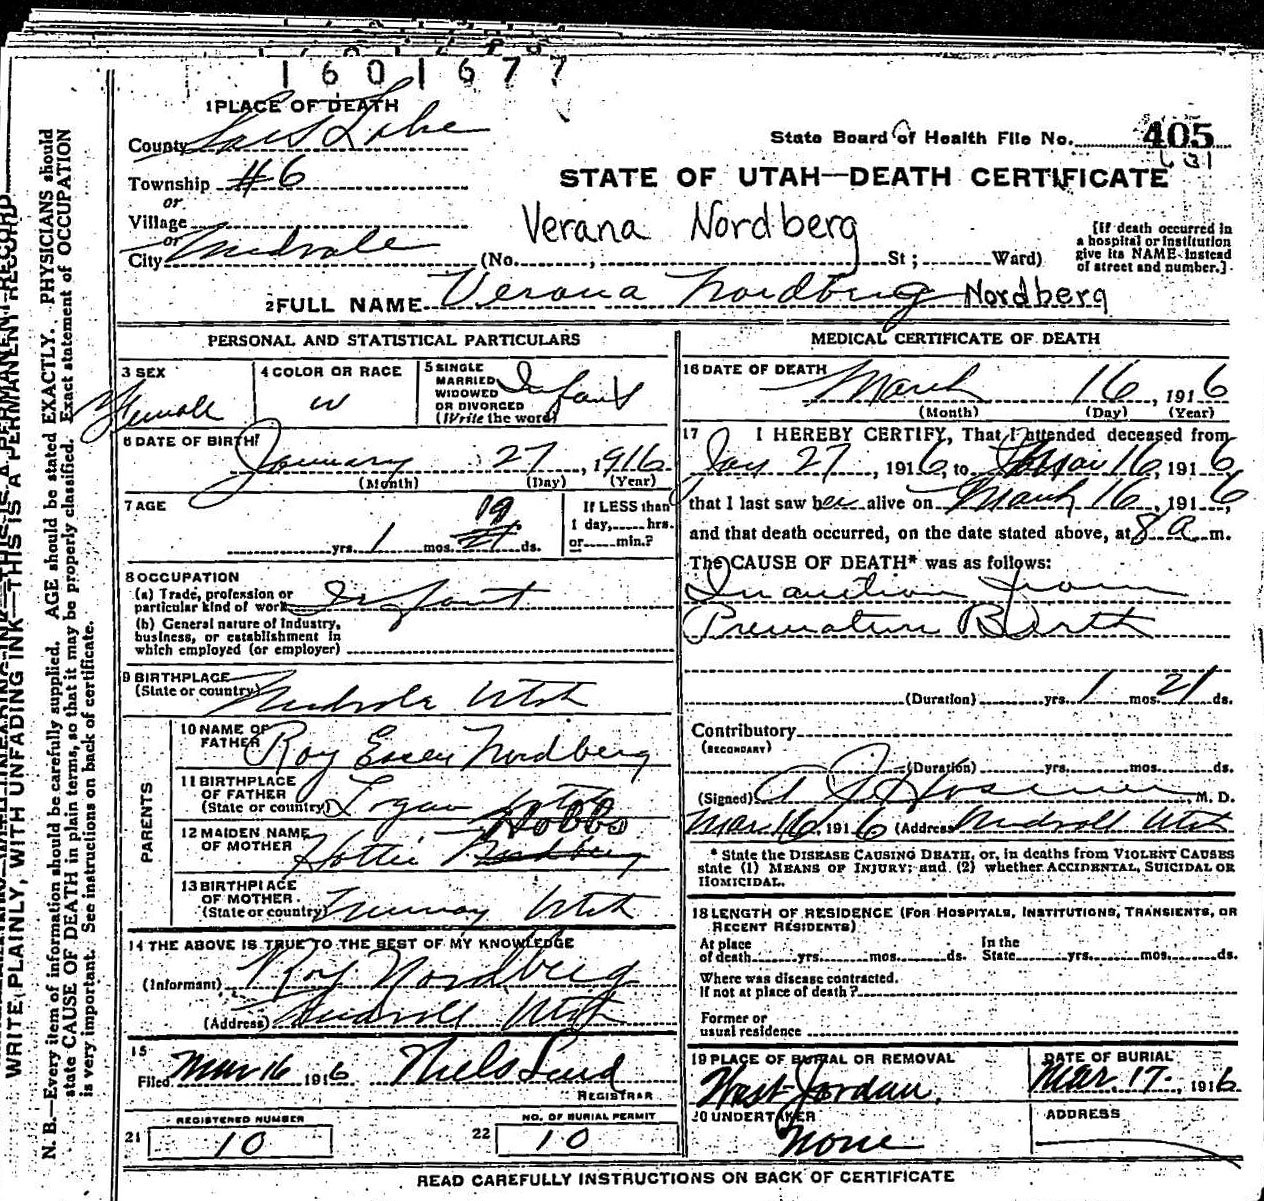 1601677
1 PLACE OF DEATH
County Salt Lake
State Board of Health File No. 405
Township #6
STATE OF UTAH—DEATH CERTIFICATE
or
Village
Verana Nordberg
or
City Midvale (No. , St ; Ward)
[If death occurred in
a hospital or institution
give its NAME instead
of street and number.]
2 FULL NAME Verana Nordberg Nordberg
PERSONAL AND STATISTICAL PARTICULARS
3 SEX
Female
4 COLOR OR RACE
W
5 SINGLE
MARRIED
WIDOWED
OR DIVORCED
(Write the word)
Infant
6 DATE OF BIRTH
January 27, 1916
(Month) (Day) (Year)
7 AGE
19
yrs. 1 mos. 21 ds.
If LESS than
1 day, hrs.
or min.?
8 OCCUPATION
(a) Trade, profession or
particular kind of work Infant
(b) General nature of industry,
business, or establishment in
which employed (or employer)
9 BIRTHPLACE
(State or country) Midvale Utah
PARENTS
10 NAME OF
FATHER Roy Nordberg
11 BIRTHPLACE
OF FATHER
(State or country) Logan Utah
12 MAIDEN NAME
OF MOTHER Hattie Nordberg Hobbs
13 BIRTHPLACE
OF MOTHER
(State or country) Murray Utah
14 THE ABOVE IS TRUE TO THE BEST OF MY KNOWLEDGE
(Informant) Roy Nordberg
(Address) Midvale Utah
15
Filed Mar 16 1916 Niels Lind
REGISTRAR
REGISTERED NUMBER
21 10
NO. OF BURIAL PERMIT
22 10
MEDICAL CERTIFICATE OF DEATH
16 DATE OF DEATH
March 16, 1916
(Month) (Day) (Year)
17 I HEREBY CERTIFY, That I attended deceased from
Jan 27, 1916, to Mar 16, 1916
that I last saw her alive on March 16, 1916,
and that death occurred, on the date stated above, at 8 a m.
The CAUSE OF DEATH* was as follows:
Inanition from
Premature Birth
(Duration) yrs. 1 mos. 21 ds.
Contributory
(SECONDARY)
(Duration) yrs. mos. ds.
(Signed) M. D.
Mar. 16, 1916 (Address) Midvale Utah
* State the DISEASE CAUSING DEATH, or, in deaths from VIOLENT CAUSES
state (1) MEANS OF INJURY; and (2) whether ACCIDENTAL, SUICIDAL OR
HOMICIDAL.
18 LENGTH OF RESIDENCE (FOR HOSPITALS, INSTITUTIONS, TRANSIENTS, OR
RECENT RESIDENTS)
At place
of death yrs. mos. ds.
In the
State yrs. mos. ds.
Where was disease contracted.
If not at place of death?
Former or
usual residence
19 PLACE OF BURIAL OR REMOVAL
West Jordan,
DATE OF BURIAL
Mar. 17., 1916
20 UNDERTAKER
None
ADDRESS
READ CAREFULLY INSTRUCTIONS ON BACK OF CERTIFICATE
WRITE PLAINLY, WITH UNFADING INK—THIS IS A PERMANENT RECORD
N. B.—Every item of information should be carefully supplied. AGE should be stated EXACTLY. PHYSICIANS should
state CAUSE OF DEATH in plain terms, so that it may be properly classified. Exact statement of OCCUPATION
is very important. See instructions on back of certificate.